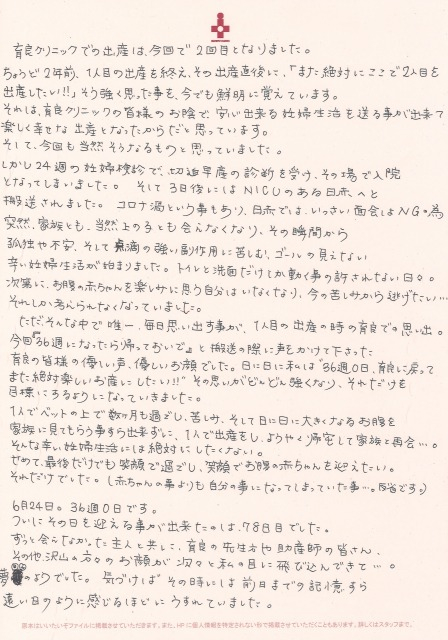 育良クリニックでの出産は、今回で2回目となりました。
ちょうど2年前、1人目の出産を終え、その出産直後に、「また絶対にここで2人目を
出産したい!!」そう強く思った事を、今でも鮮明に覚えています。
それは、育良クリニックの皆様のお陰で、安い出来る妊婦生活を送る事が出来て
楽しく幸せな出産となったからだと思っています。
そして、今回も当然そうなるものと思っていました。
しかし24週の妊婦検診で、切迫早産の診断を受け、その場で入院
となってしまいました。そして3日後にはNICUのある日赤へと
搬送されました。コロナ渦という事もあり、日赤では、いっさい面会はNGの為
突然、家族とも、当然上の子とも会えなくなり、その瞬間から
孤独や不安、そして点滴の強い副作用に苦しむ、ゴールの見えない
辛い妊婦生活が始まりました。トイレと洗面だけしか動く事の許されない日々。
次第に、お腹の赤ちゃんを楽しみに思う自分はいなくなり、今の苦しみから逃げたい…
それしか考えられなくなっていました。
ただそんな中で唯一、毎日思い出す事が、1人目の出産の時の育良での思い出。
今回『36週になったら帰っておいで』と搬送の際に声をかけて下さった
育良の皆様の優しい声、優しいお顔でした。日に日に私は“36週0日、育良に戻って
また絶対楽しいお産にしたい!!”その思いがどんどん強くなり、それだけを
目標にするようになっていきました。
1人でベットの上で数ヶ月も過ごし、苦しみ、そして日に日に大きくなるお腹を
家族に見てもらう事すら出来ずに、1人で出産をし、ようやく帰宅して家族と再会…。
そんな辛い妊婦生活には絶対にしたくない。
せめて、最後だけでも笑顔で過ごし、笑顔でお腹の赤ちゃんを迎えたい。
それだけでした。(赤ちゃんの事よりも自分の事になってしまっていた事…。反省です。)
6月24日。36週0日です。
ついにその日を迎える事が出来たのは、78日目でした。
ずっと会えなかった主人と共に、育良の先生方や助産師の皆さん、
その他、沢山の方々のお顔が次々と私の目に飛び込んできて…。
夢のようでした。気づけばその時には前日までの記憶すら
遠い日のように感じるほどにうすれていました。
原本はいいたいそファイルに掲載させていただきます。また、HPに個人情報を特定されない形で掲載させていただくこともあります。詳しくはスタッフまで。